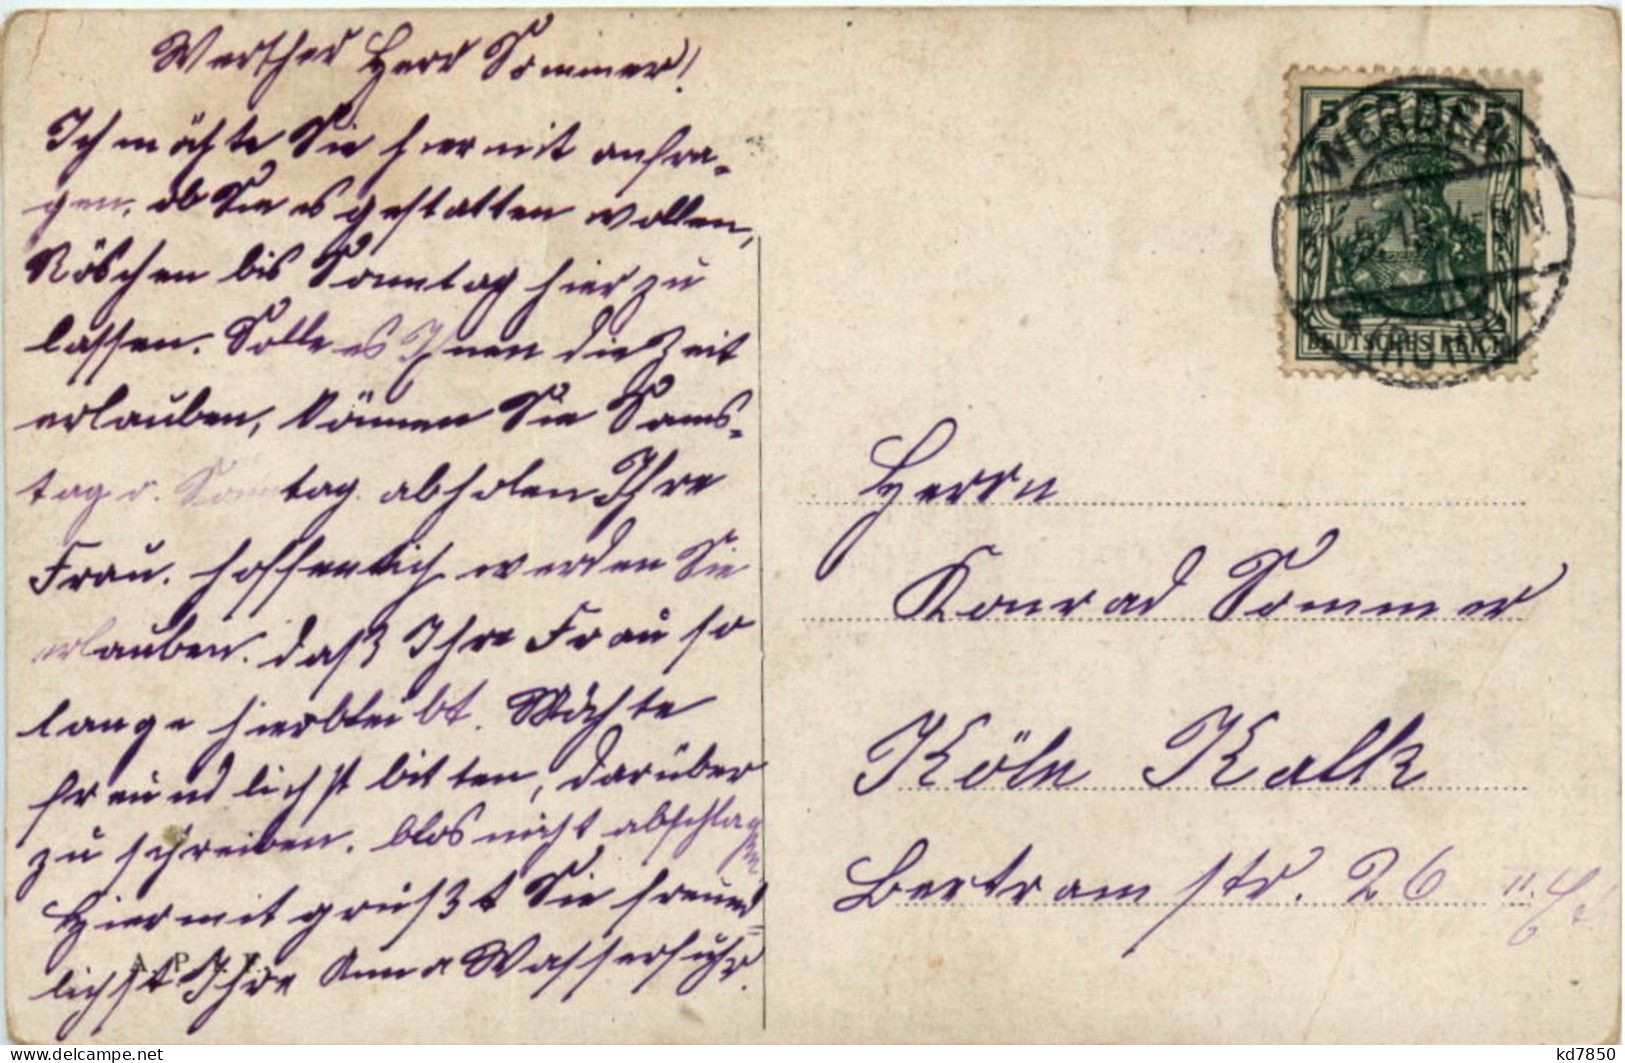 Werther Herr Sommer!
Ich möchte Sie hiermit anfra-
gen, ob Sie es gestatten wollen,
Röschen bis Sonntag hier zu
lassen. Solle es Ihnen die Zeit
erlauben, können Sie Sams-
tag o. Sonntag abholen Ihre
Frau. hoffentlich werden Sie
erlauben. daß Ihre Frau so
lange hierbleibt. Möchte
freundlichst bitten, darüber
zu schreiben. blos nicht abschlagen
Hiermit grüßt Sie freund=
lichst Ihre Anna Wasserfuhr.
A. P.
5 5
WERDEN
(RUHR)
DEUTSCHES REICH
Herrn
Konrad Sommer
Köln Kalk
Bertramstr. 26 II.
kd7850